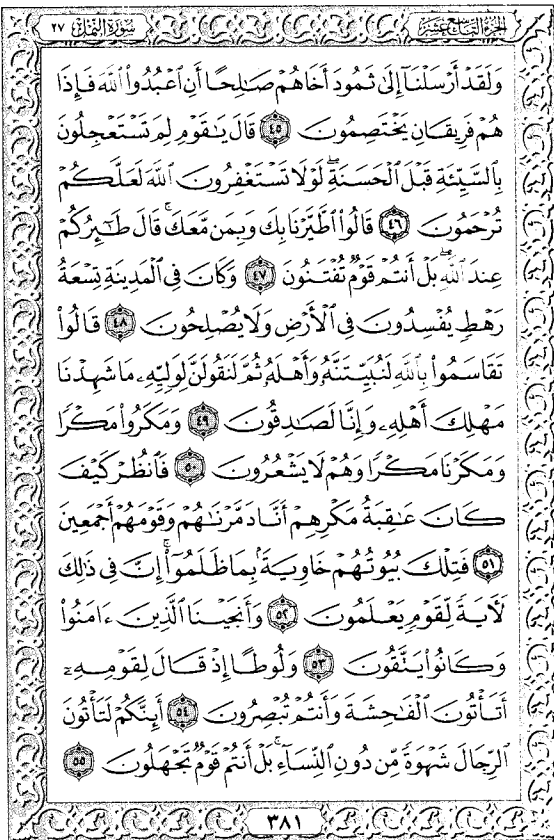 الجزء التاسع عشر سورة النمل ٢٧
وَلَقَدْ أَرْسَلْنَآ إِلَىٰ ثَمُودَ أَخَاهُمْ صَـٰلِحًا أَنِ ٱعْبُدُوا۟ ٱللَّهَ فَإِذَا
هُمْ فَرِيقَانِ يَخْتَصِمُونَ ٤٥ قَالَ يَـٰقَوْمِ لِمَ تَسْتَعْجِلُونَ
بِٱلسَّيِّئَةِ قَبْلَ ٱلْحَسَنَةِ ۖ لَوْلَا تَسْتَغْفِرُونَ ٱللَّهَ لَعَلَّكُمْ
تُرْحَمُونَ ٤٦ قَالُوا۟ ٱطَّيَّرْنَا بِكَ وَبِمَن مَّعَكَ ۚ قَالَ طَـٰٓئِرُكُمْ
عِندَ ٱللَّهِ ۖ بَلْ أَنتُمْ قَوْمٌ تُفْتَنُونَ ٤٧ وَكَانَ فِى ٱلْمَدِينَةِ تِسْعَةُ
رَهْطٍ يُفْسِدُونَ فِى ٱلْأَرْضِ وَلَا يُصْلِحُونَ ٤٨ قَالُوا۟
تَقَاسَمُوا۟ بِٱللَّهِ لَنُبَيِّتَنَّهُۥ وَأَهْلَهُۥ ثُمَّ لَنَقُولَنَّ لِوَلِيِّهِۦ مَا شَهِدْنَا
مَهْلِكَ أَهْلِهِۦ وَإِنَّا لَصَـٰدِقُونَ ٤٩ وَمَكَرُوا۟ مَكْرًا
وَمَكَرْنَا مَكْرًا وَهُمْ لَا يَشْعُرُونَ ٥٠ فَٱنظُرْ كَيْفَ
كَانَ عَـٰقِبَةُ مَكْرِهِمْ أَنَّا دَمَّرْنَـٰهُمْ وَقَوْمَهُمْ أَجْمَعِينَ
٥١ فَتِلْكَ بُيُوتُهُمْ خَاوِيَةًۢ بِمَا ظَلَمُوٓا۟ ۗ إِنَّ فِى ذَٰلِكَ
لَـَٔايَةً لِّقَوْمٍ يَعْلَمُونَ ٥٢ وَأَنجَيْنَا ٱلَّذِينَ ءَامَنُوا۟
وَكَانُوا۟ يَتَّقُونَ ٥٣ وَلُوطًا إِذْ قَالَ لِقَوْمِهِۦٓ
أَتَأْتُونَ ٱلْفَـٰحِشَةَ وَأَنتُمْ تُبْصِرُونَ ٥٤ أَئِنَّكُمْ لَتَأْتُونَ
ٱلرِّجَالَ شَهْوَةً مِّن دُونِ ٱلنِّسَآءِ ۚ بَلْ أَنتُمْ قَوْمٌ تَجْهَلُونَ ٥٥
٣٨١